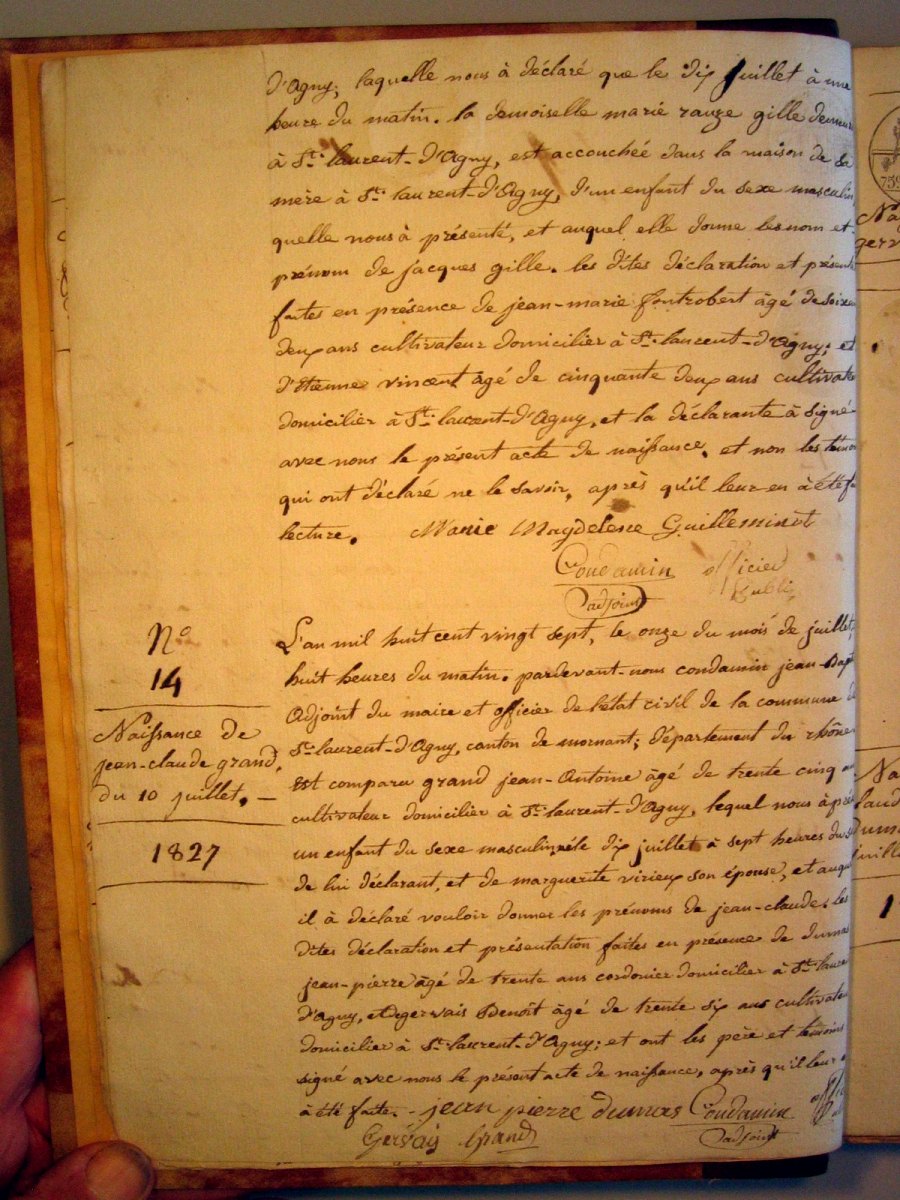 d'agny; laquelle nous à déclaré que le dix juillet à une
heure du matin. la demoiselle marie gille
à St. laurent-d'Agny, est accouchée dans la maison de sa
mère à St. laurent-d'Agny, d'un enfant du sexe masculin
quelle nous à présenté, et auquel elle donne les nom et
prénom de jacques gille. les dites déclaration et présent
faites en présence de jean-marie fontrobert âgé de soixan
deux ans cultivateur domicilier à St. laurent-d'Agny; et
d'étienne vincent âgé de cinquante deux ans cultivate
domicilier à St. laurent-d'Agny, et la déclarante à signé
avec nous le présent acte de naissance, et non les témoi
qui ont déclaré ne le savoir, après qu'il leur en à été f
lecture. Marie Magdelene Guilleminot
Condamin officier
adjoint Publi
No
14
Naissance de
jean-claude grand.
du 10 juillet. —
1827
L'an mil huit cent vingt sept, le onze du mois de juillet,
huit heures du matin. pardevant-nous condamin jean-Bapt
Adjoint du maire et officier de l'état civil de la commune d
St. laurent-d'Agny, canton de mornant; département du rhône
est comparu grand jean-Antoine âgé de trente cinq an
cultivateur domicilier à St. laurent-d'Agny, lequel nous à pré
un enfant du sexe masculin, né le dix juillet à sept heures du s
de lui déclarant, et de marguerite virieux son épouse, et auqu
il à déclaré vouloir donner les prénoms de jean-claude. les
dites déclaration et présentation faites en présence de dumas
jean-pierre âgé de trente ans cordonier domicilier à St. laure
d'agny, et de gervais Benoît âgé de trente six ans cultivateu
domicilier à St. laurent-d'Agny; et ont les père et témoins
signé avec nous le présent acte de naissance, après qu'il leur
à été faite. - jean pierre dumas Condamin
Gervais Grand adjoint
759
Na
gerv
Na
laud
duma
juille
1